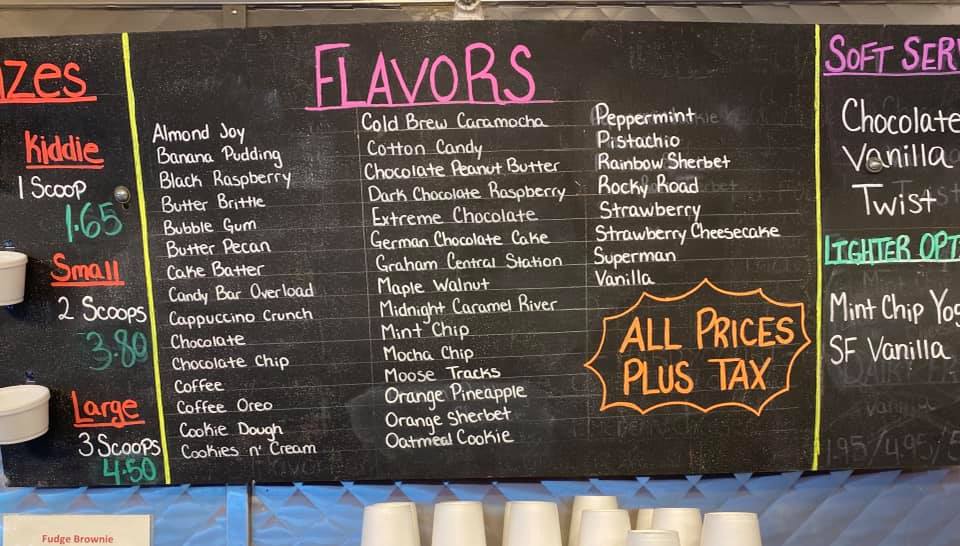 IZES
Kiddie
1 Scoop
1.65
Small
2 Scoops
3.80
Large
3 Scoops
4.50
FLAVORS
Almond Joy
Banana Pudding
Black Raspberry
Butter Brittle
Bubble Gum
Butter Pecan
Cake Batter
Candy Bar Overload
Cappuccino Crunch
Chocolate
Chocolate Chip
Coffee
Coffee Oreo
Cookie Dough
Cookies n' Cream
Cold Brew Caramocha
Cotton Candy
Chocolate Peanut Butter
Dark Chocolate Raspberry
Extreme Chocolate
German Chocolate Cake
Graham Central Station
Maple Walnut
Midnight Caramel River
Mint Chip
Mocha Chip
Moose Tracks
Orange Pineapple
Orange Sherbet
Oatmeal Cookie
Peppermint
Pistachio
Rainbow Sherbet
Rocky Road
Strawberry
Strawberry Cheesecake
Superman
Vanilla
ALL PRICES
PLUS TAX
SOFT SER
Chocolate
Vanilla
Twist
LIGHTER OPT
Mint Chip Yog
SF Vanilla
Fudge Brownie